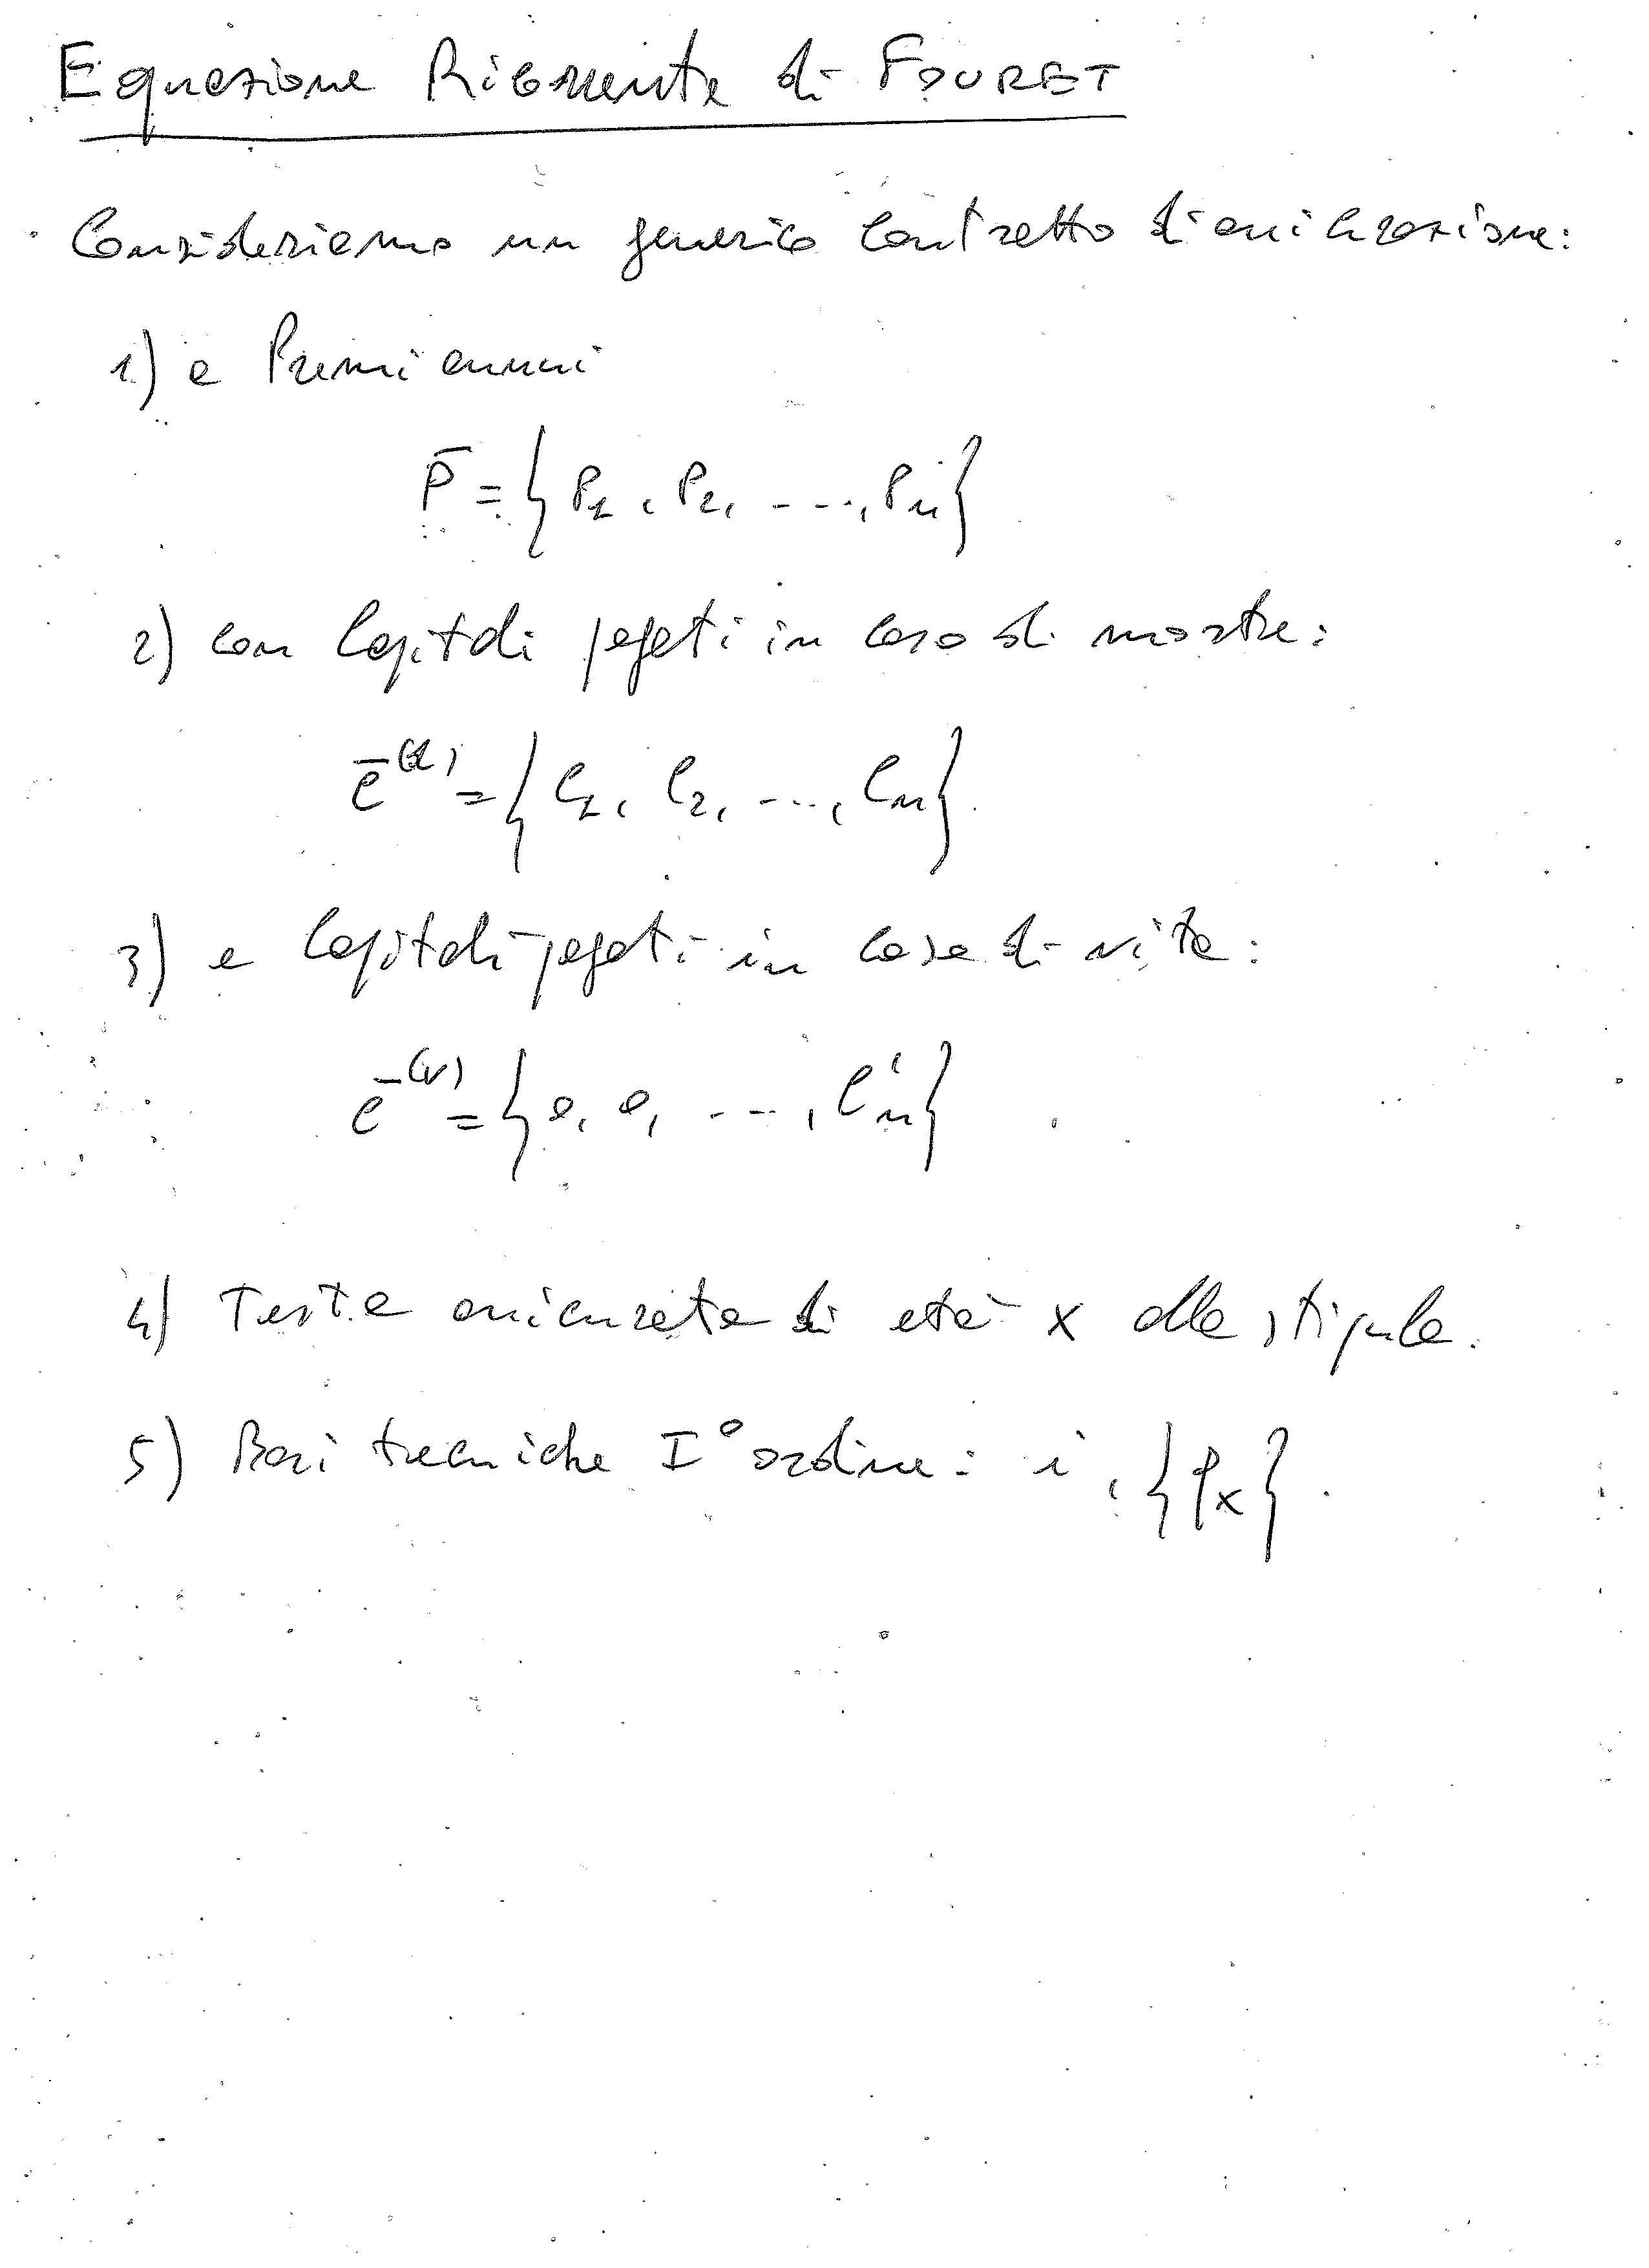 Equazione Ricorrente di FOURET
Consideriamo un generico contratto di assicurazione:
1) a Premi annui
P̄ = { P₁, P₂, ..., Pₙ }
2) con Capitali pagati in caso di morte:
C̄⁽ᵈ⁾ = { C₁, C₂, ..., Cₙ }.
3) e Capitali pagati in caso di vita:
C̄⁽ᵛ⁾ = { 0, 0, ..., C'ₙ }
4) Testa assicurata di età x alla stipula.
5) Basi tecniche I° ordine: i, { qₓ }.